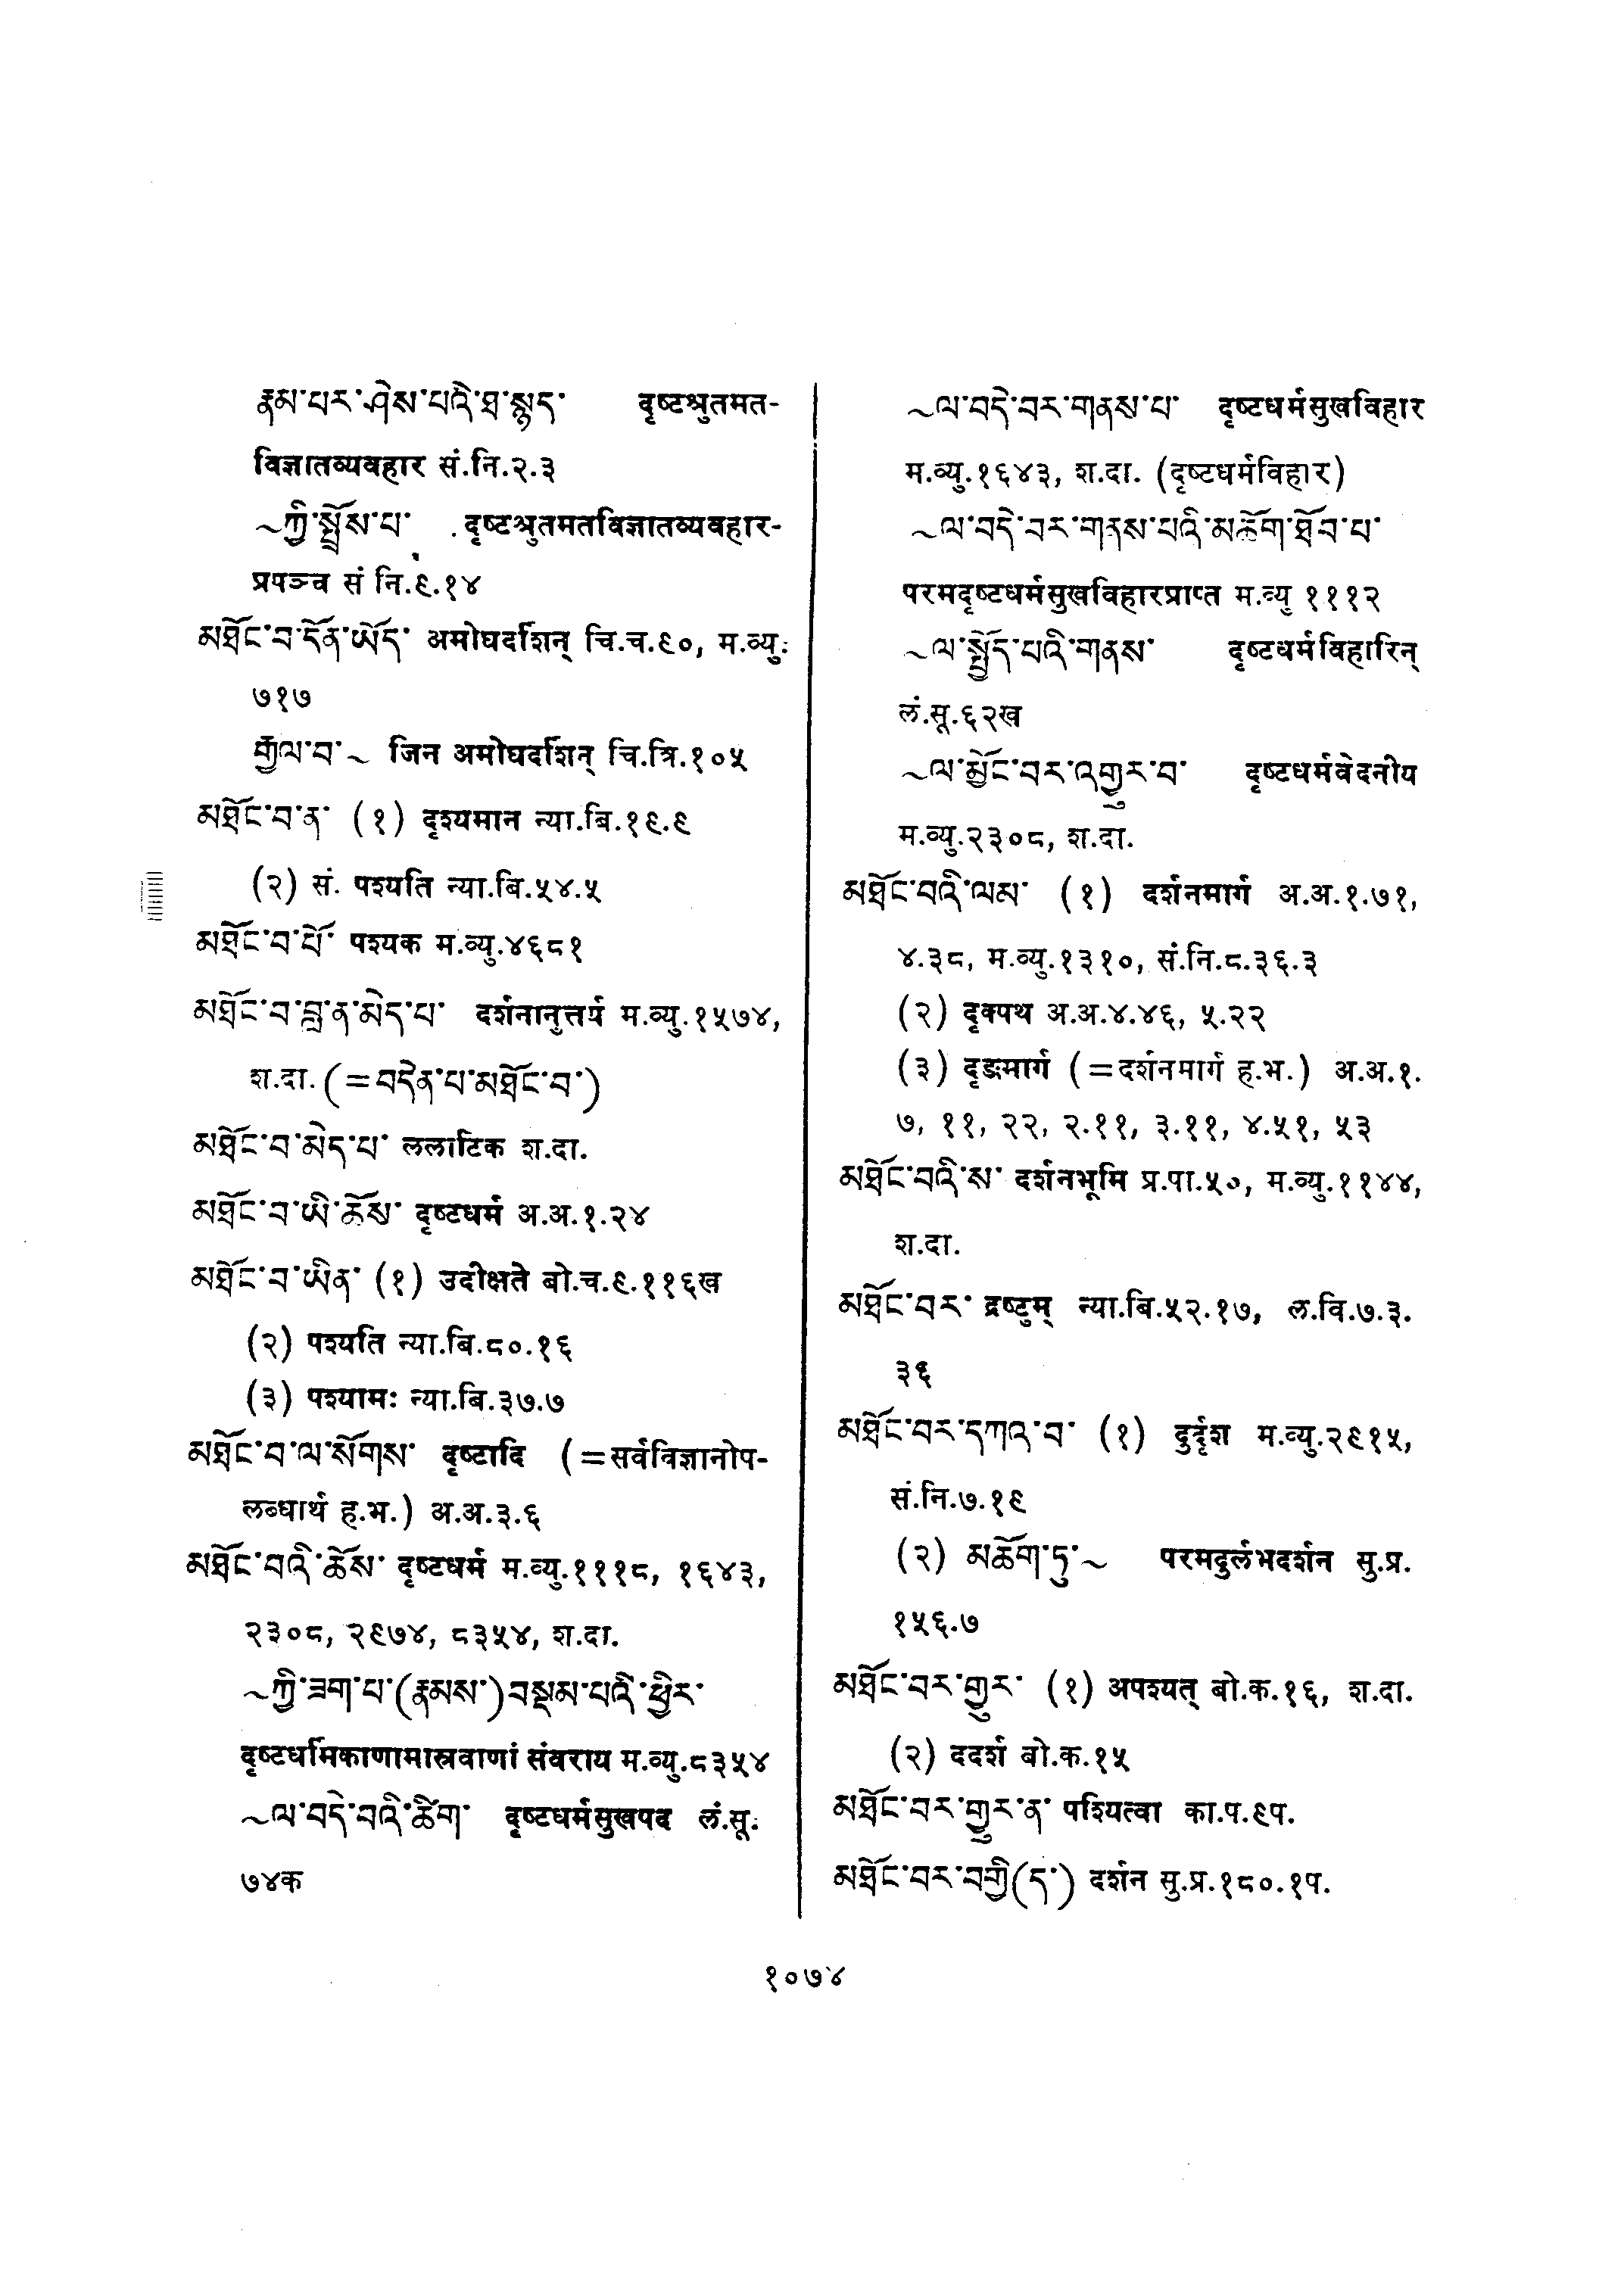 རྣམ་པར་ཤེས་པའི་ཐ་སྙད་ दृष्टश्रुतमत-
विज्ञातव्यवहार सं.नि.२.३
~ཀྱི་སྤྲོས་པ་ दृष्टश्रुतमतविज्ञातव्यवहार-
प्रपञ्च सं नि.९.१४
མཐོང་བ་དོན་ཡོད་ अमोघदर्शिन् चि.च.९०, म.व्यु.
७१७
རྒྱལ་བ་~ जिन अमोघदर्शिन् चि.त्रि.१०५
མཐོང་བ་ན་ (१) दृश्यमान न्या.बि.१९.९
(२) सं. पश्यति न्या.बि.५४.५
མཐོང་བ་པོ་ पश्यक म.व्यु.४६८१
མཐོང་བ་བླ་ན་མེད་པ་ दर्शनानुत्तर्य म.व्यु.१५७४,
श.दा. (=བདེན་པ་མཐོང་བ་)
མཐོང་བ་མེད་པ་ ललाटिक श.दा.
མཐོང་བ་ཡི་ཆོས་ दृष्टधर्म अ.अ.१.२४
མཐོང་བ་ཡིན་ (१) उदीक्षते बो.च.९.११६ख
(२) पश्यति न्या.बि.८०.१६
(३) पश्यामः न्या.बि.३७.७
མཐོང་བ་ལ་སོགས་ दृष्टादि (=सर्वविज्ञानोप-
लब्धार्थ ह.भ.) अ.अ.३.६
མཐོང་བའི་ཆོས་ दृष्टधर्म म.व्यु.१११८, १६४३,
२३०८, २९७४, ८३५४, श.दा.
~ཀྱི་ཟག་པ་(རྣམས་)བསྡམ་པའི་ཕྱིར་
दृष्टधर्मिकाणामास्रवाणां संवराय म.व्यु.८३५४
~ལ་བདེ་བའི་ཚིག་ दृष्टधर्मसुखपद लं.सू.
७४क
~ལ་བདེ་བར་གནས་པ་ दृष्टधर्मसुखविहार
म.व्यु.१६४३, श.दा. (दृष्टधर्मविहार)
~ལ་བདེ་བར་གནས་པའི་མཆོག་ཐོབ་པ་
परमदृष्टधर्मसुखविहारप्राप्त म.व्यु १११२
~ལ་སྤྱོད་པའི་གནས་ दृष्टधर्मविहारिन्
लं.सू.६२ख
~ལ་མྱོང་བར་འགྱུར་བ་ दृष्टधर्मवेदनीय
म.व्यु.२३०८, श.दा.
མཐོང་བའི་ལམ་ (१) दर्शनमार्ग अ.अ.१.७१,
४.३८, म.व्यु.१३१०, सं.नि.८.३६.३
(२) दृक्पथ अ.अ.४.४६, ५.२२
(३) दृङमार्ग (=दर्शनमार्ग ह.भ.) अ.अ.१.
७, ११, २२, २.११, ३.११, ४.५१, ५३
མཐོང་བའི་ས་ दर्शनभूमि प्र.पा.५०, म.व्यु.११४४,
श.दा.
མཐོང་བར་ द्रष्टुम् न्या.बि.५२.१७, ल.वि.७.३.
३६
མཐོང་བར་དཀའ་བ་ (१) दुर्दृश म.व्यु.२९१५,
सं.नि.७.१९
(२) མཆོག་ཏུ་~ परमदुर्लभदर्शन सु.प्र.
१५६.७
མཐོང་བར་གྱུར་ (१) अपश्यत् बो.क.१६, श.दा.
(२) ददर्श बो.क.१५
མཐོང་བར་གྱུར་ན་ पश्यित्वा का.प.९प.
མཐོང་བར་བགྱི(ད་) दर्शन सु.प्र.१८०.१प.
१०७४